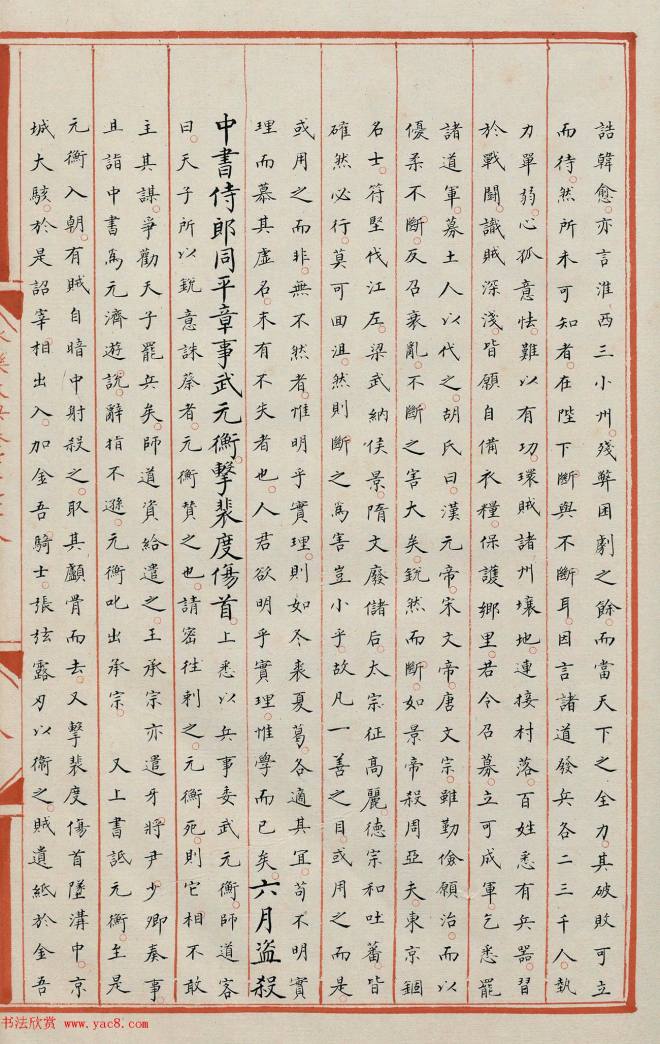 誥韓愈亦言淮西三小州殘弊困劇之餘而當天下之全力其破敗可立
而待然所未可知者在陛下斷與不斷耳因言諸道發兵各二三千人執
力單弱心孤意怯難以有功環賊諸州壤地連接村落百姓悉有兵器習
於戰鬬識賊深淺皆願自備衣糧保護鄉里若令召募立可成軍乞悉罷
諸道軍募土人以代之胡氏曰漢元帝宋文帝唐文宗雖勤儉願治而以
優柔不斷反召衰亂不斷之害大矣銳然而斷如景帝殺周亞夫東京錮
名士符堅伐江左梁武納侯景隋文廢儲后太宗征高麗德宗和吐蕃皆
確然必行莫可回沮然則斷之爲害豈小乎故凡一善之目或用之而是
或用之而非無不然者惟明乎實理則如冬裘夏葛各適其宜苟不明實
理而慕其虛名未有不失者也人君欲明乎實理惟學而已矣六月盜殺
中書侍郎同平章事武元衡擊裴度傷首上悉以兵事委武元衡師道客
曰天子所以銳意誅蔡者元衡贊之也請密往刺之元衡死則它相不敢
主其謀爭勸天子罷兵矣師道資給遣之王承宗亦遣牙將尹少卿奏事
且詣中書爲元濟遊說辭指不遜元衡叱出承宗 又上書詆元衡至是
元衡入朝有賊自暗中射殺之取其顱骨而去又擊裴度傷首墜溝中京
城大駭於是詔宰相出入加金吾騎士張弦露刃以衛之賊遺紙於金吾
书法欣赏 www.yac8.com